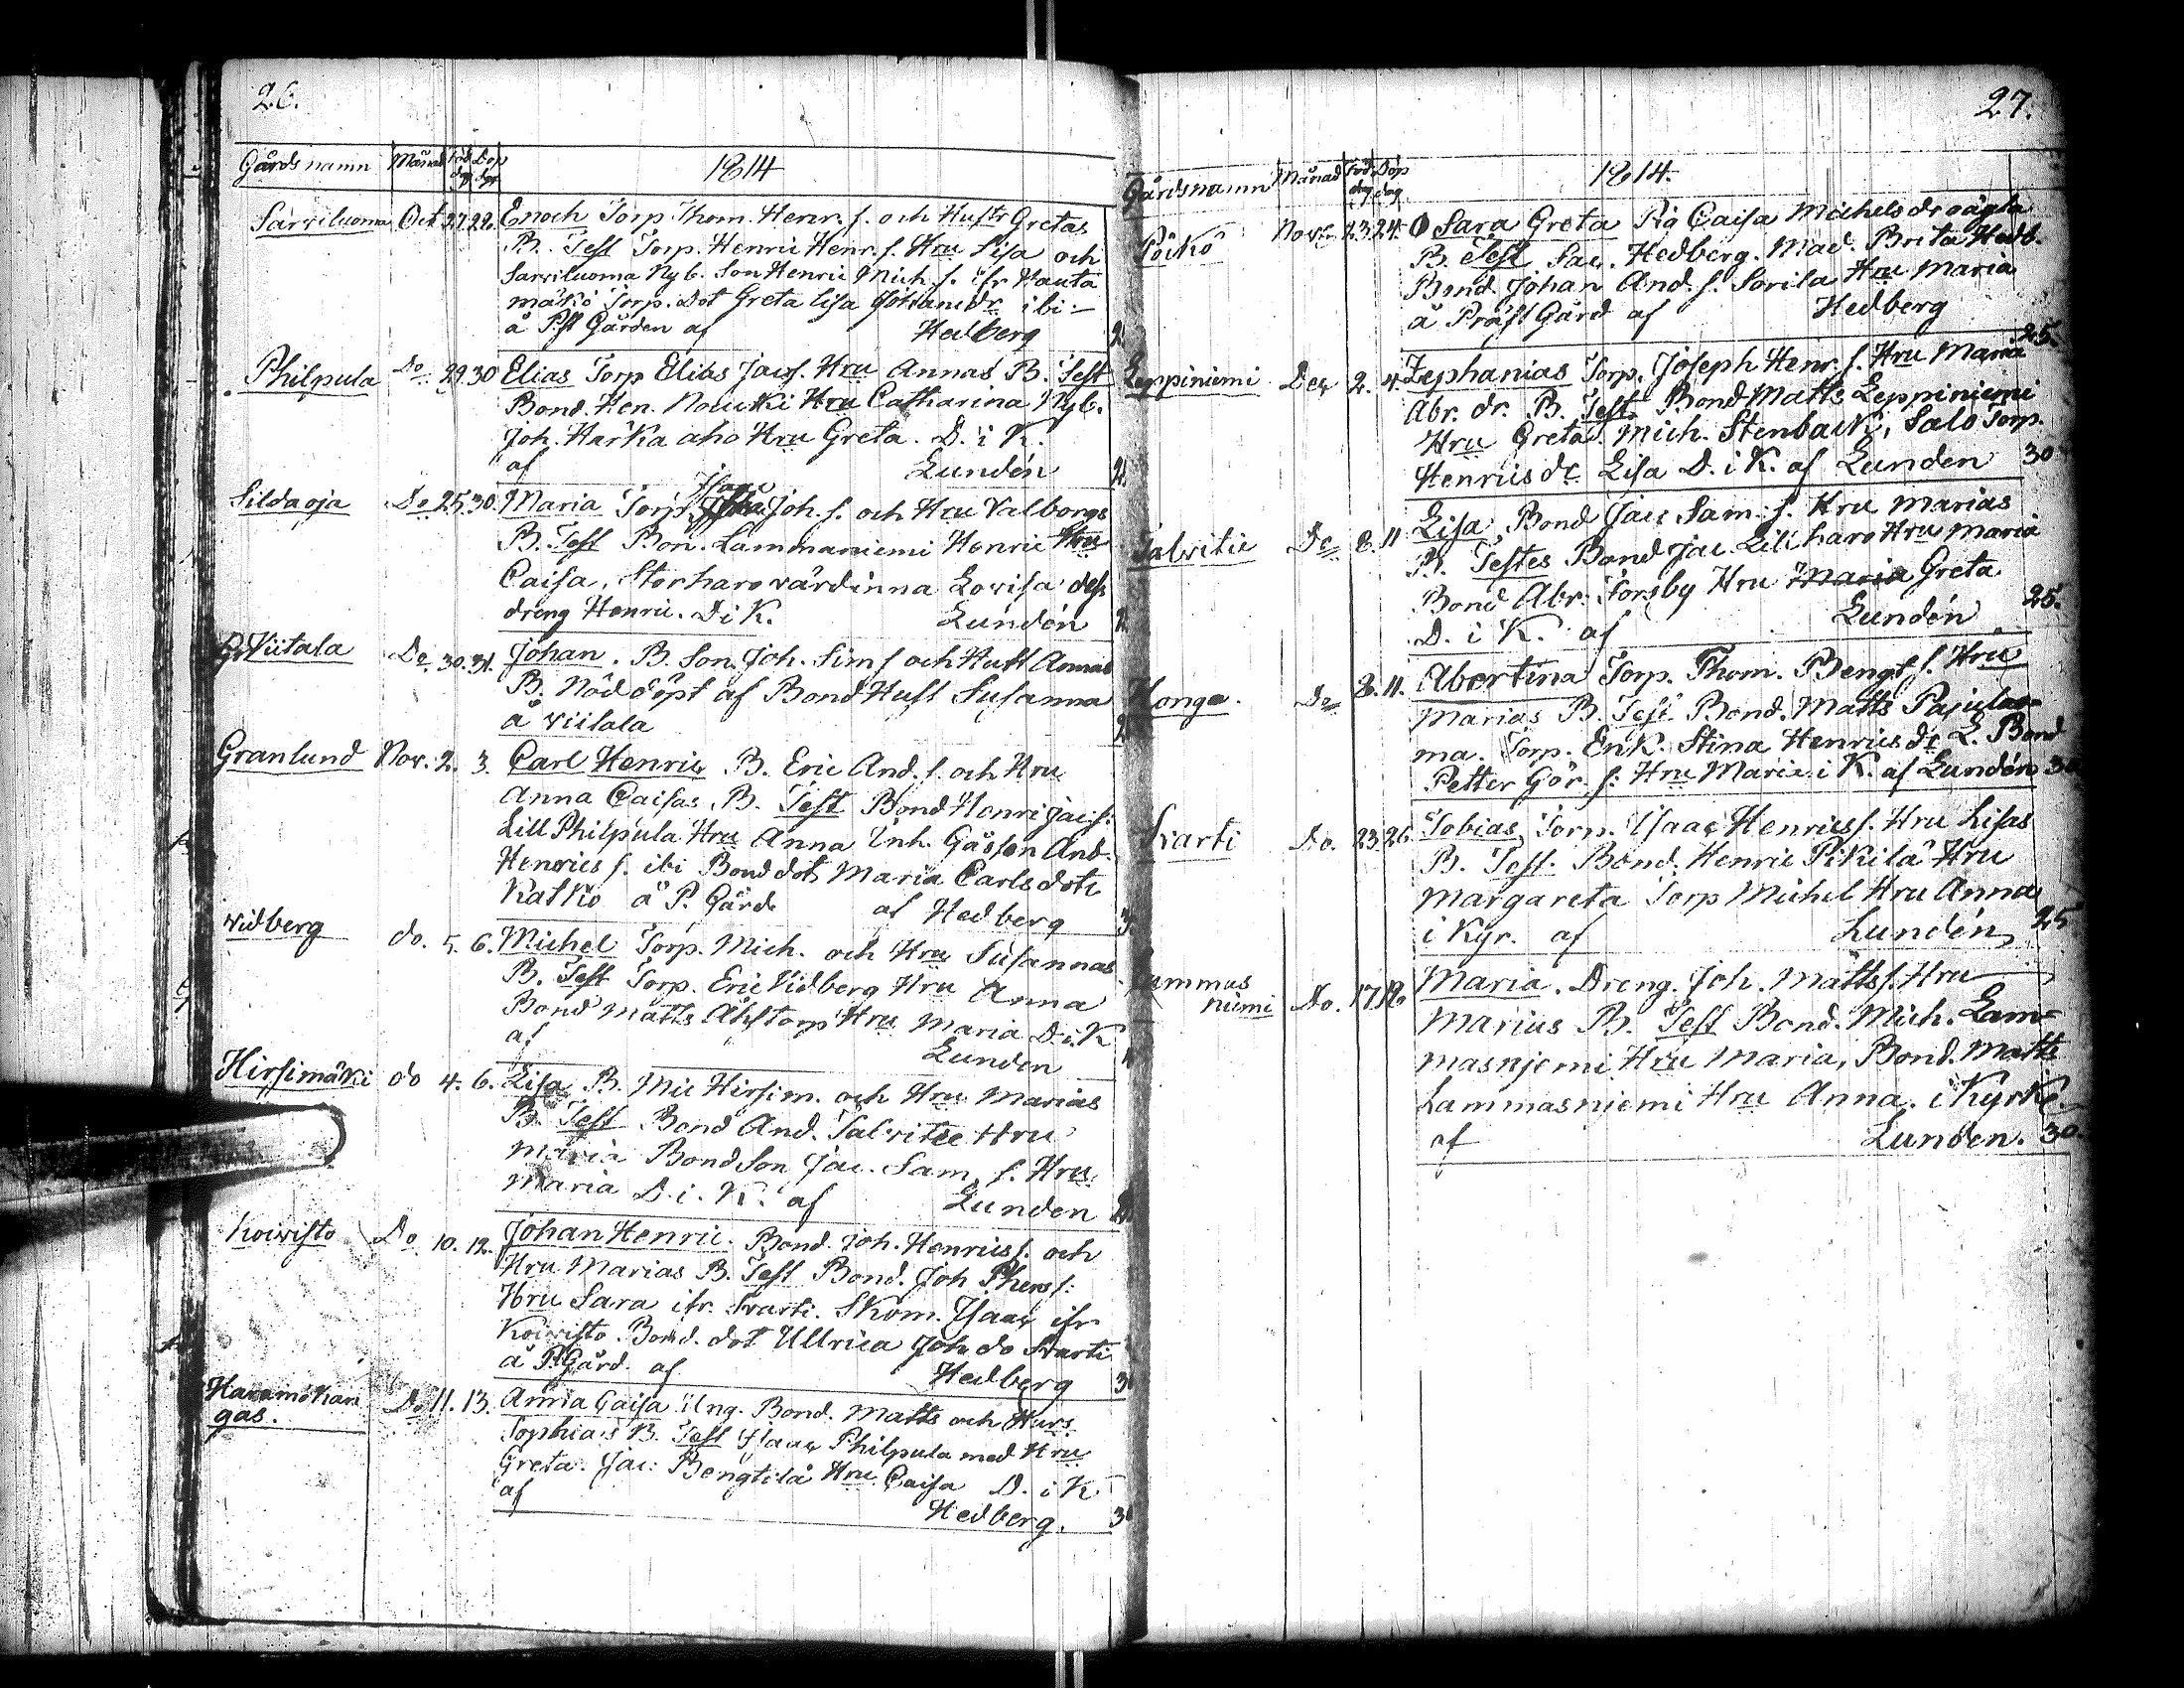 26.
Gårds namn Månad Föd dag Döp dgr 1814
Sarviluoma Oct 27. 28. Enoch Torp Thom. Henr. s. och Hustr Gretas
B. Test Torp. Henric Henr. s. Hru Lisa och
Sarviluoma Nyb. Son Henric Mich. s. ifr Hauta
mäkö Torp. Dot Greta Lisa Johansdr ibi
å Pst Gården af Hedberg
Philpula Do 29 30 Elias Torp Elias Jac s. Hru Annas B. Test
Bond. Hen. Hru Catharina Nyb.
Joh. Harka aho Hru Greta. D. i K.
af Lundén
Sildaoja Do 25. 30. Maria Torp Isaac Joh. s. och Hru Valborgs
B. Test Bon. Lammaniemi Henric Hru
Caisa, Storharo värdinna Lovisa dess
dreng Henric. D i K. Lundén
Gr Viitala Do. 30. 31. Johan. B. Son Joh. Sim s och Hust Annas
B. Nöd döpt af Bond Hust Susanna
å Viitala
Granlund Nov. 2. 3. Carl Henric B. Eric And. s. och Hru
Anna Caisas B. Test Bond Henric Jac. s.
Lill Philpula Hru Anna Inh. Gåsson And.
Henrics s. ibi Bond dot Maria Carls dotr
Katko å P. Gård af Hedberg
Widberg do. 5. 6. Michel Torp. Mich. och Hru Susannas
B. Test Torp. Eric Vidberg Hru Anna
Bond Matts Åhstorp Hru Maria D. i K
af Lunden
Hirsimäki do 4. 6. Lisa B. Mic Hirsim. och Hru Marias
B. Test Bond And. Talvitie Hru
Maria Bondson Jac. Sam. s. Hru
Maria D. i. K. af Lunden
Koivisto Do 10. 12. Johan Henric. Bond. Joh. Henrics s. och
Hru Marias B. Test Bond. Joh s.
Hru Sara ifr. Svarti. Skom. Isaac ifr
Koivisto. Bond. dot Ullrica Joh do Svarti
å P. Gård. af Hedberg
gas. Do 11. 13. Anna Caisa Ung. Bond. Matts och Hurs
Sophias B. Test Isaac Philpula med Hru
Greta. Jac. Bengtilä Hru Caisa D. i K
af
Hedberg.
27.
Gårdsnamn Månad Föd dag Döp dag. 1814.
Pöikö Novr 23. 24. O Sara Greta Pig Caisa Michels dr oägta
B. Test Sac. Hedberg. Mad. Brita Hedb.
Bond. Johan And. s. Sorila Hru Maria
å Präst Gård af Hedberg
25.
Leppiniemi Dec 2. 4. Zephanias Torp. Joseph Henr. s. Hru Maria
Abr. dr. B. Test Bond Matts Leppiniemi
Hru Greta. Mich. Stenback, Salo Torp.
Henrics dr Lisa D. i K. af Lunden 30
Talvitie Do 8. 11 Lisa, Bond Jac Sam. s. Hru Marias
B. Testes Bond Jac. Lill haro Hru Maria
Bond Abr. Forsby Hru Maria Greta
D. i K. af Lundén 25.
Konga. Do 8. 11. Abertina Torp. Thom. Bengt s. Hru
Marias B. Test Bond. Matts Pajuluo-
ma. Torp. Enk. Stina Henrics dr L. Bond
Petter Gör. s. Hru Maria i K. af Lundén 30
Svarti Do. 23. 26. Tobias Torp. Isaac Henrics s. Hru Lisas
B. Test. Bond. Henric Pikilä Hru
Margareta Torp Michel Hru Anna
i Kyr. af Lundén 25
Lammas
niemi Do. 17. 18. Maria. Dreng. Joh. Matts s. Hru
Marias B. Test Bond. Mich. Lam-
masnjemi Hru Maria, Bond. Matts
Lammasniemi Hru Anna. i Kyrk.
af Lunden. 30.